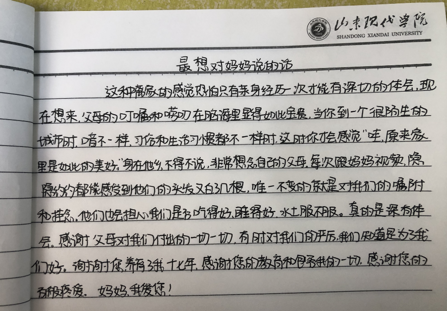 山东现代学院
SHANDONG XIANDAI UNIVERSITY
最想对妈妈说的话
这种离家的感觉恐怕只有亲身经历一次才能有深切的体会,现
在想来,父母的叮嘱和唠叨在脑海里显得如此金贵,当你到一个很陌生的
城市时,口音不一样,习俗和生活习惯都不一样时,这时你才会感觉“哇,原来家
里是如此的美好,”身在他乡,不得不说,非常想念自己的父母,每次跟妈妈视频,隐
隐约约都能感受到他们的头发又白了几根,唯一不变的依旧是对我们的嘱咐
和挂念,他们也会担心我们是否吃得好,睡得好,水土服不服。真的是深有体
会,感谢父母对我们付出的一切一切,有时对我们的严厉,我们知道是为了我
们好。谢谢您,养育了我十七年,感谢您的教育和给予我的一切,感谢您的
疼爱,妈妈,我爱您!